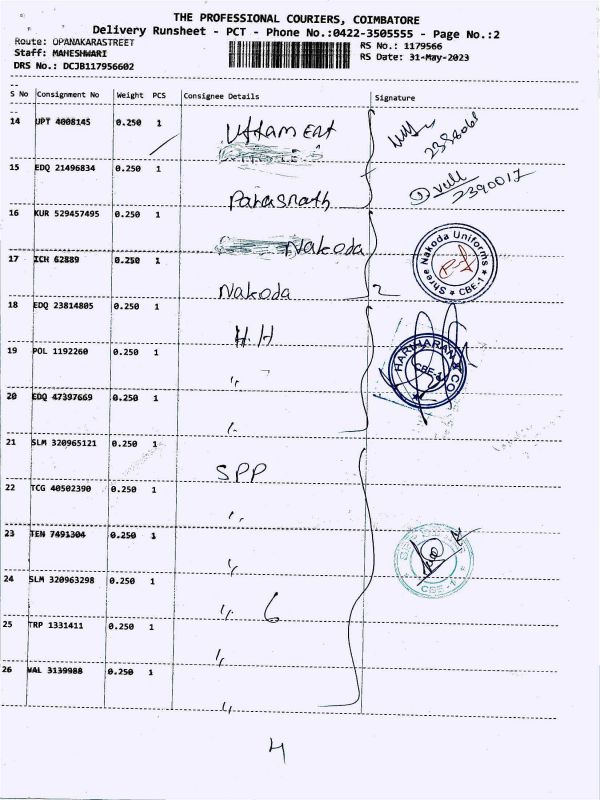 THE PROFESSIONAL COURIERS, COIMBATORE
Delivery Runsheet - PCT - Phone No.:0422-3505555 - Page No.:2
Route: OPANAKARASTREET
Staff: MAHESHWARI
DRS No.: DCJB117956602
RS No.: 1179566
RS Date: 31-May-2023
S No Consignment No Weight PCS Consignee Details Signature
14 UPT 4008145 0.250 1 Uttam Ent
2386068
15 EDQ 21496834 0.250 1 Parasnath
2390017
16 KUR 529457495 0.250 1 Nakoda
17 ICH 62889 0.250 1 Nakoda 2
Shree Nakoda Uniforms
* CBE-1 *
18 EDQ 23814805 0.250 1 H.H
19 POL 1192260 0.250 1 "
HARIHARAN & CO
CBE-1
20 EDQ 47397669 0.250 1 "
21 SLM 320965121 0.250 1 SPP
22 TCG 40502390 0.250 1 "
23 TEN 7491304 0.250 1 "
CBE-1
24 SLM 320963298 0.250 1 " 6
25 TRP 1331411 0.250 1 "
26 WAL 3139988 0.250 1 "
4